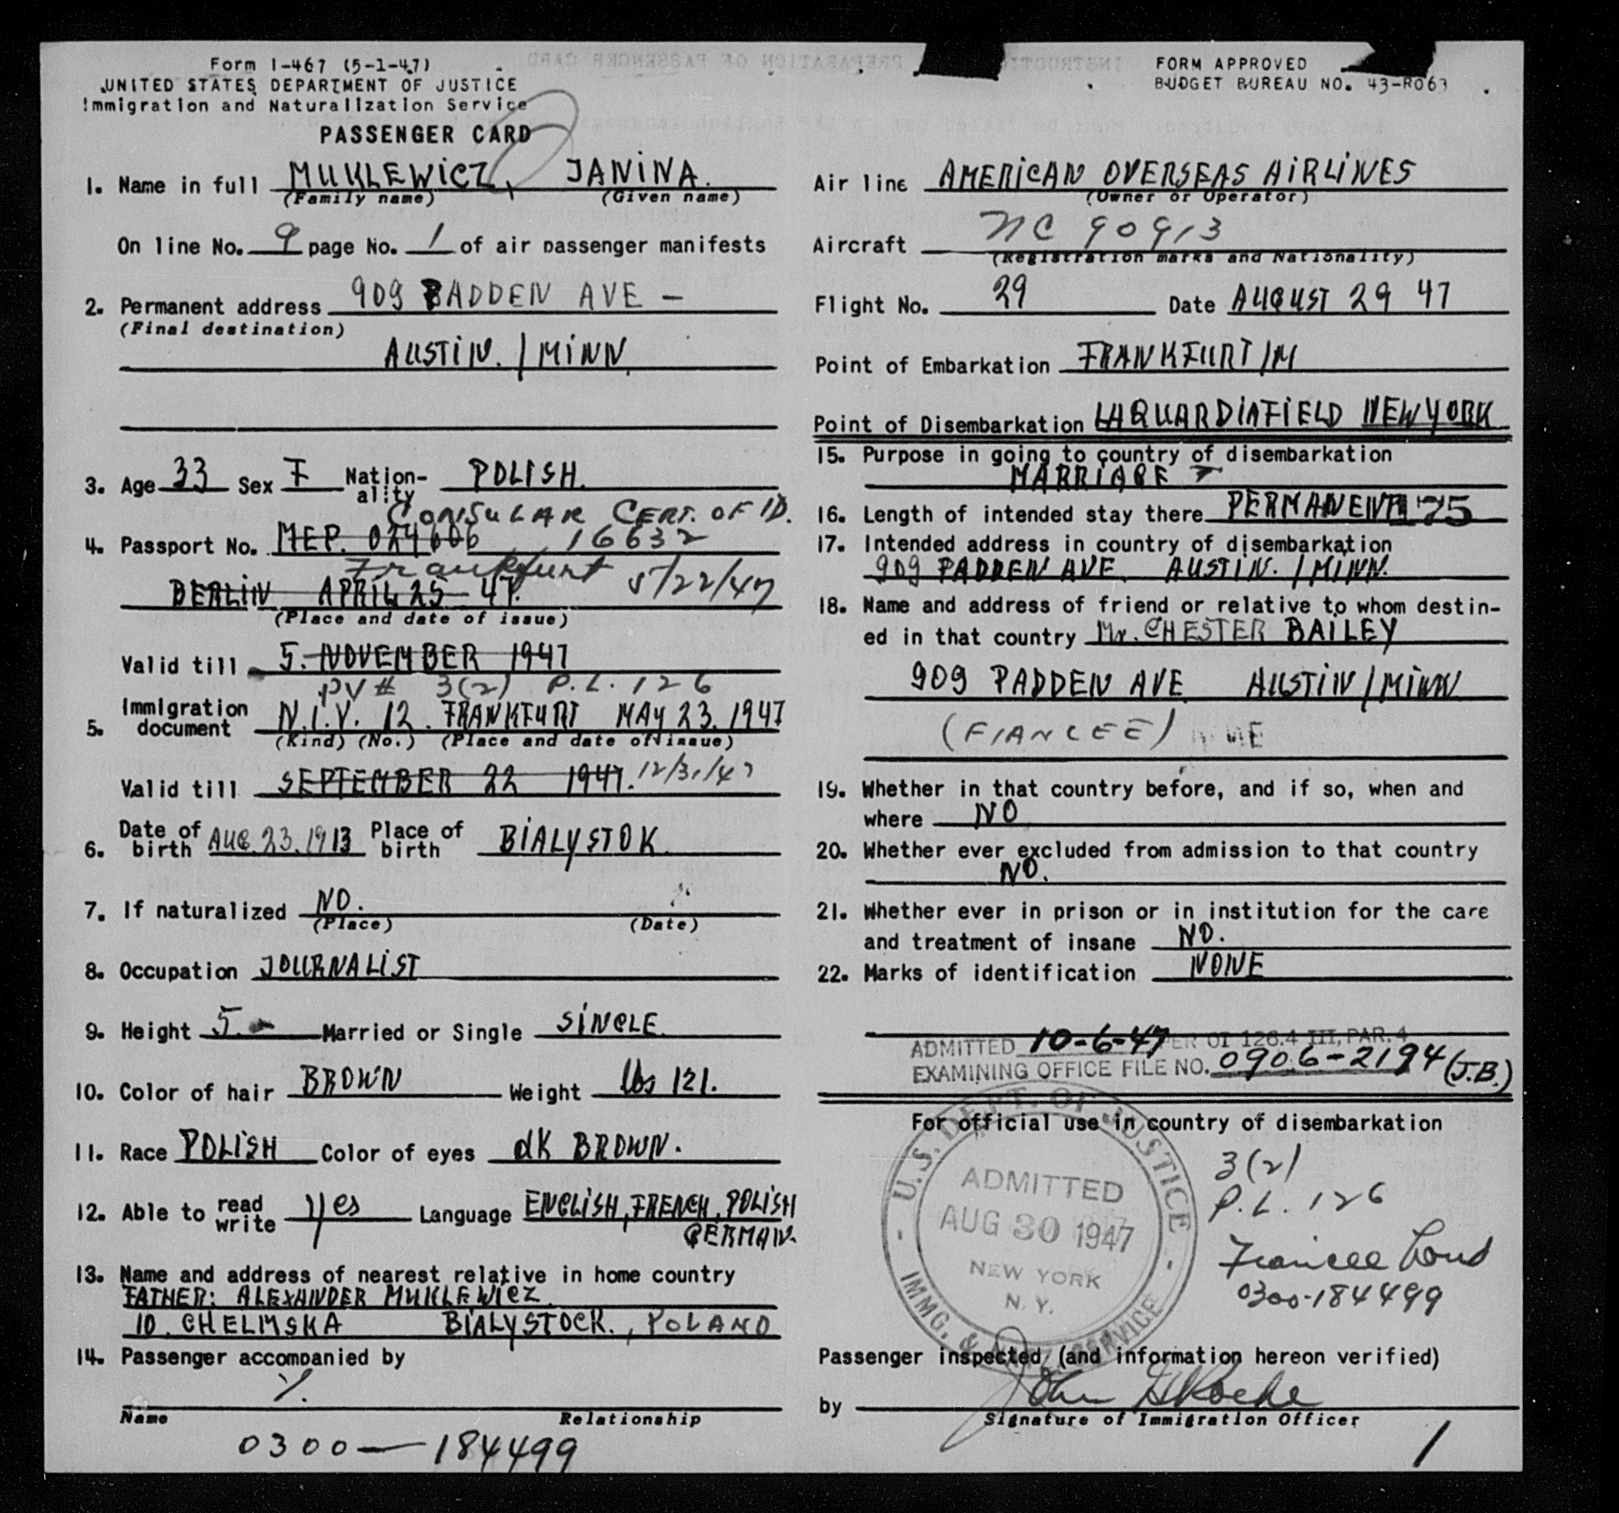 Form I-467 (5-1-47)
UNITED STATES DEPARTMENT OF JUSTICE
Immigration and Naturalization Service
PASSENGER CARD
1. Name in full MUKLEWICZ, JANINA.
(Family name) (Given name)
On line No. 9 page No. 1 of air passenger manifests
2. Permanent address 909 PADDEN AVE -
(Final destination)
AUSTIN. / MINN.
3. Age 33 Sex F Nation-ality POLISH.
CONSULAR CERT. OF ID.
4. Passport No. MEP. 024606 16632
Frankfurt 5/22/47
BERLIN APRIL 25 47.
(Place and date of issue)
Valid till 5. NOVEMBER 1947
PV # 3(2) P.L. 126
5. Immigration document N.I.V. 12. FRANKFURT MAY 23. 1947
(Kind) (No.) (Place and date of issue)
Valid till SEPTEMBER 22 1947. 12/31/47
6. Date of birth AUG. 23. 1913 Place of birth BIALYSTOK
7. If naturalized NO.
(Place) (Date)
8. Occupation JOURNALIST
9. Height 5. Married or Single SINGLE.
10. Color of hair BROWN Weight lbs 121.
11. Race POLISH Color of eyes dK BROWN.
12. Able to read write yes Language ENGLISH, FRENCH, POLISH
GERMAN.
13. Name and address of nearest relative in home country
FATHER: ALEXANDER MUKLEWICZ
10. CHELMSKA BIALYSTOCK., POLAND
14. Passenger accompanied by
Name Relationship
0300-184499
FORM APPROVED
BUDGET BUREAU NO. 43-R063
Air line AMERICAN OVERSEAS AIRLINES
(Owner or Operator)
Aircraft NC 90913
(Registration marks and Nationality)
Flight No. 29 Date AUGUST 29 47
Point of Embarkation FRANKFURT/M
Point of Disembarkation LAQUARDIAFIELD NEW YORK
15. Purpose in going to country of disembarkation
MARRIAGE
16. Length of intended stay there PERMANENT 175
17. Intended address in country of disembarkation
909 PADDEN AVE. AUSTIN. / MINN.
18. Name and address of friend or relative to whom destin-
ed in that country Mr. CHESTER BAILEY
909 PADDEN AVE. AUSTIN / MINN
(FIANCEE)
19. Whether in that country before, and if so, when and
where NO
20. Whether ever excluded from admission to that country
NO.
21. Whether ever in prison or in institution for the care
and treatment of insane NO.
22. Marks of identification NONE
ADMITTED 10-6-47 PER OI 126.4 III, PAR. 4
EXAMINING OFFICE FILE NO. 0906-2194 (J.B.)
For official use in country of disembarkation
U.S. DEPT. OF JUSTICE
ADMITTED
AUG 30 1947
NEW YORK
N. Y.
IMMG. & NATZ. SERVICE
3(2)
P.L. 126
Fiancee
0300-184499
Passenger inspected (and information hereon verified)
by John
Signature of Immigration Officer
1